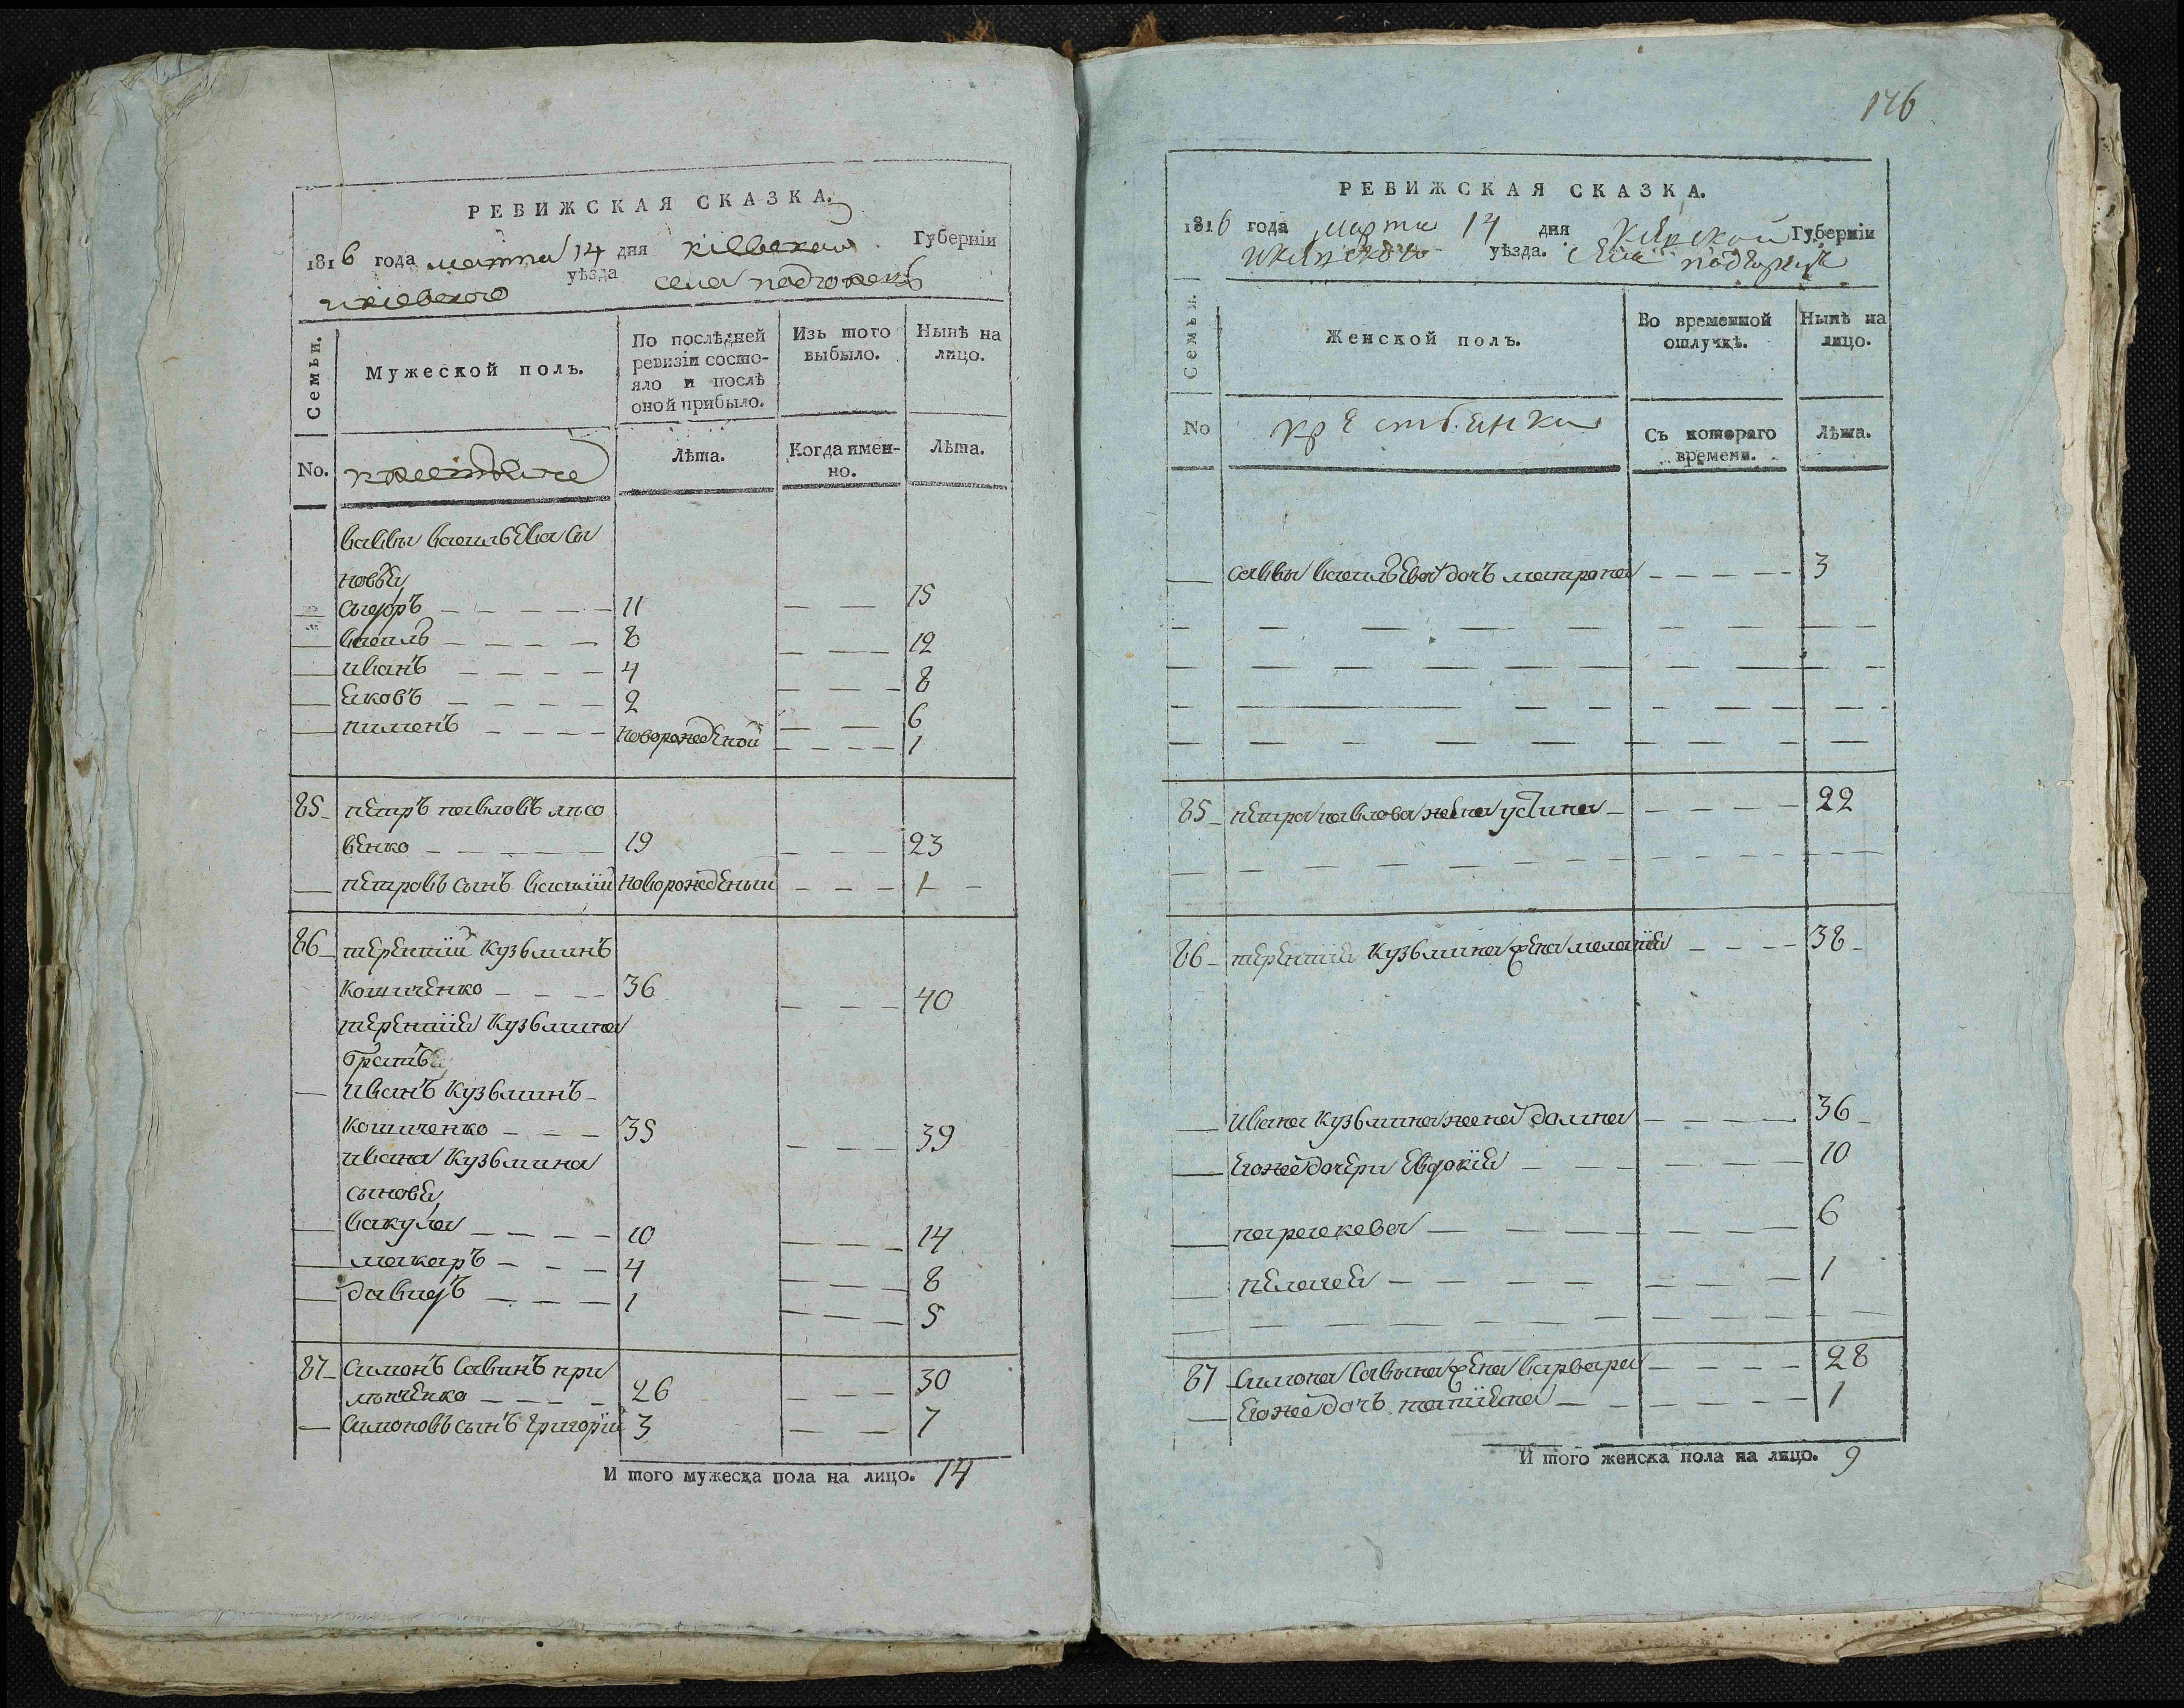 РЕВИЖСКАЯ СКАЗКА.
1816 года марта 14 дня Кіевской Губерніи
и Кіевского уѣзда села подгорецъ
Семьи.
Мужеской полъ.
По послѣдней ревизіи состояло и послѣ оной прибыло.
Изъ того выбыло.
Нынѣ на лицо.
No.
крестьяне
Лѣта.
Когда именно.
Лѣта.
Саввы васильева сы
новья
сидоръ 11 15
василь 8 12
иванъ 4 8
яковъ 2 6
пименъ новорожденой 1
85 петръ павловъ лисо
венко 19 23
петровъ сынъ василий новорожденый 1
86 терентий кузьминъ
кошиченко 36 40
терентия кузьмина
братья
иванъ кузьминъ
кошиченко 35 39
ивана кузьмина
сыновья
вакула 10 14
макаръ 4 8
давидъ 1 5
87 Симонъ Савинъ при
мыченко 26 30
Симоновъ сынъ григорий 3 7
И того мужеска пола на лицо. 14
176
РЕВИЖСКАЯ СКАЗКА.
1816 года марта 14 дня Киевской Губерніи
и Киевского уѣзда. села подгорецъ
Семьи.
Женской полъ.
Во временной отлучкѣ.
Нынѣ на лицо.
No
крестьянки
Съ котораго времени.
Лѣта.
саввы васильева дочь матрона 3
85 петра павлова жена устина 22
86 терентия кузьмина жена мелания 38
ивана кузьмина жена домна 36
Его же дочери Евдокия 10
параскева 6
пелагея 1
87 Симона Савина жена варвара 28
Его же дочь татияна 1
И того женска пола на лицо. 9